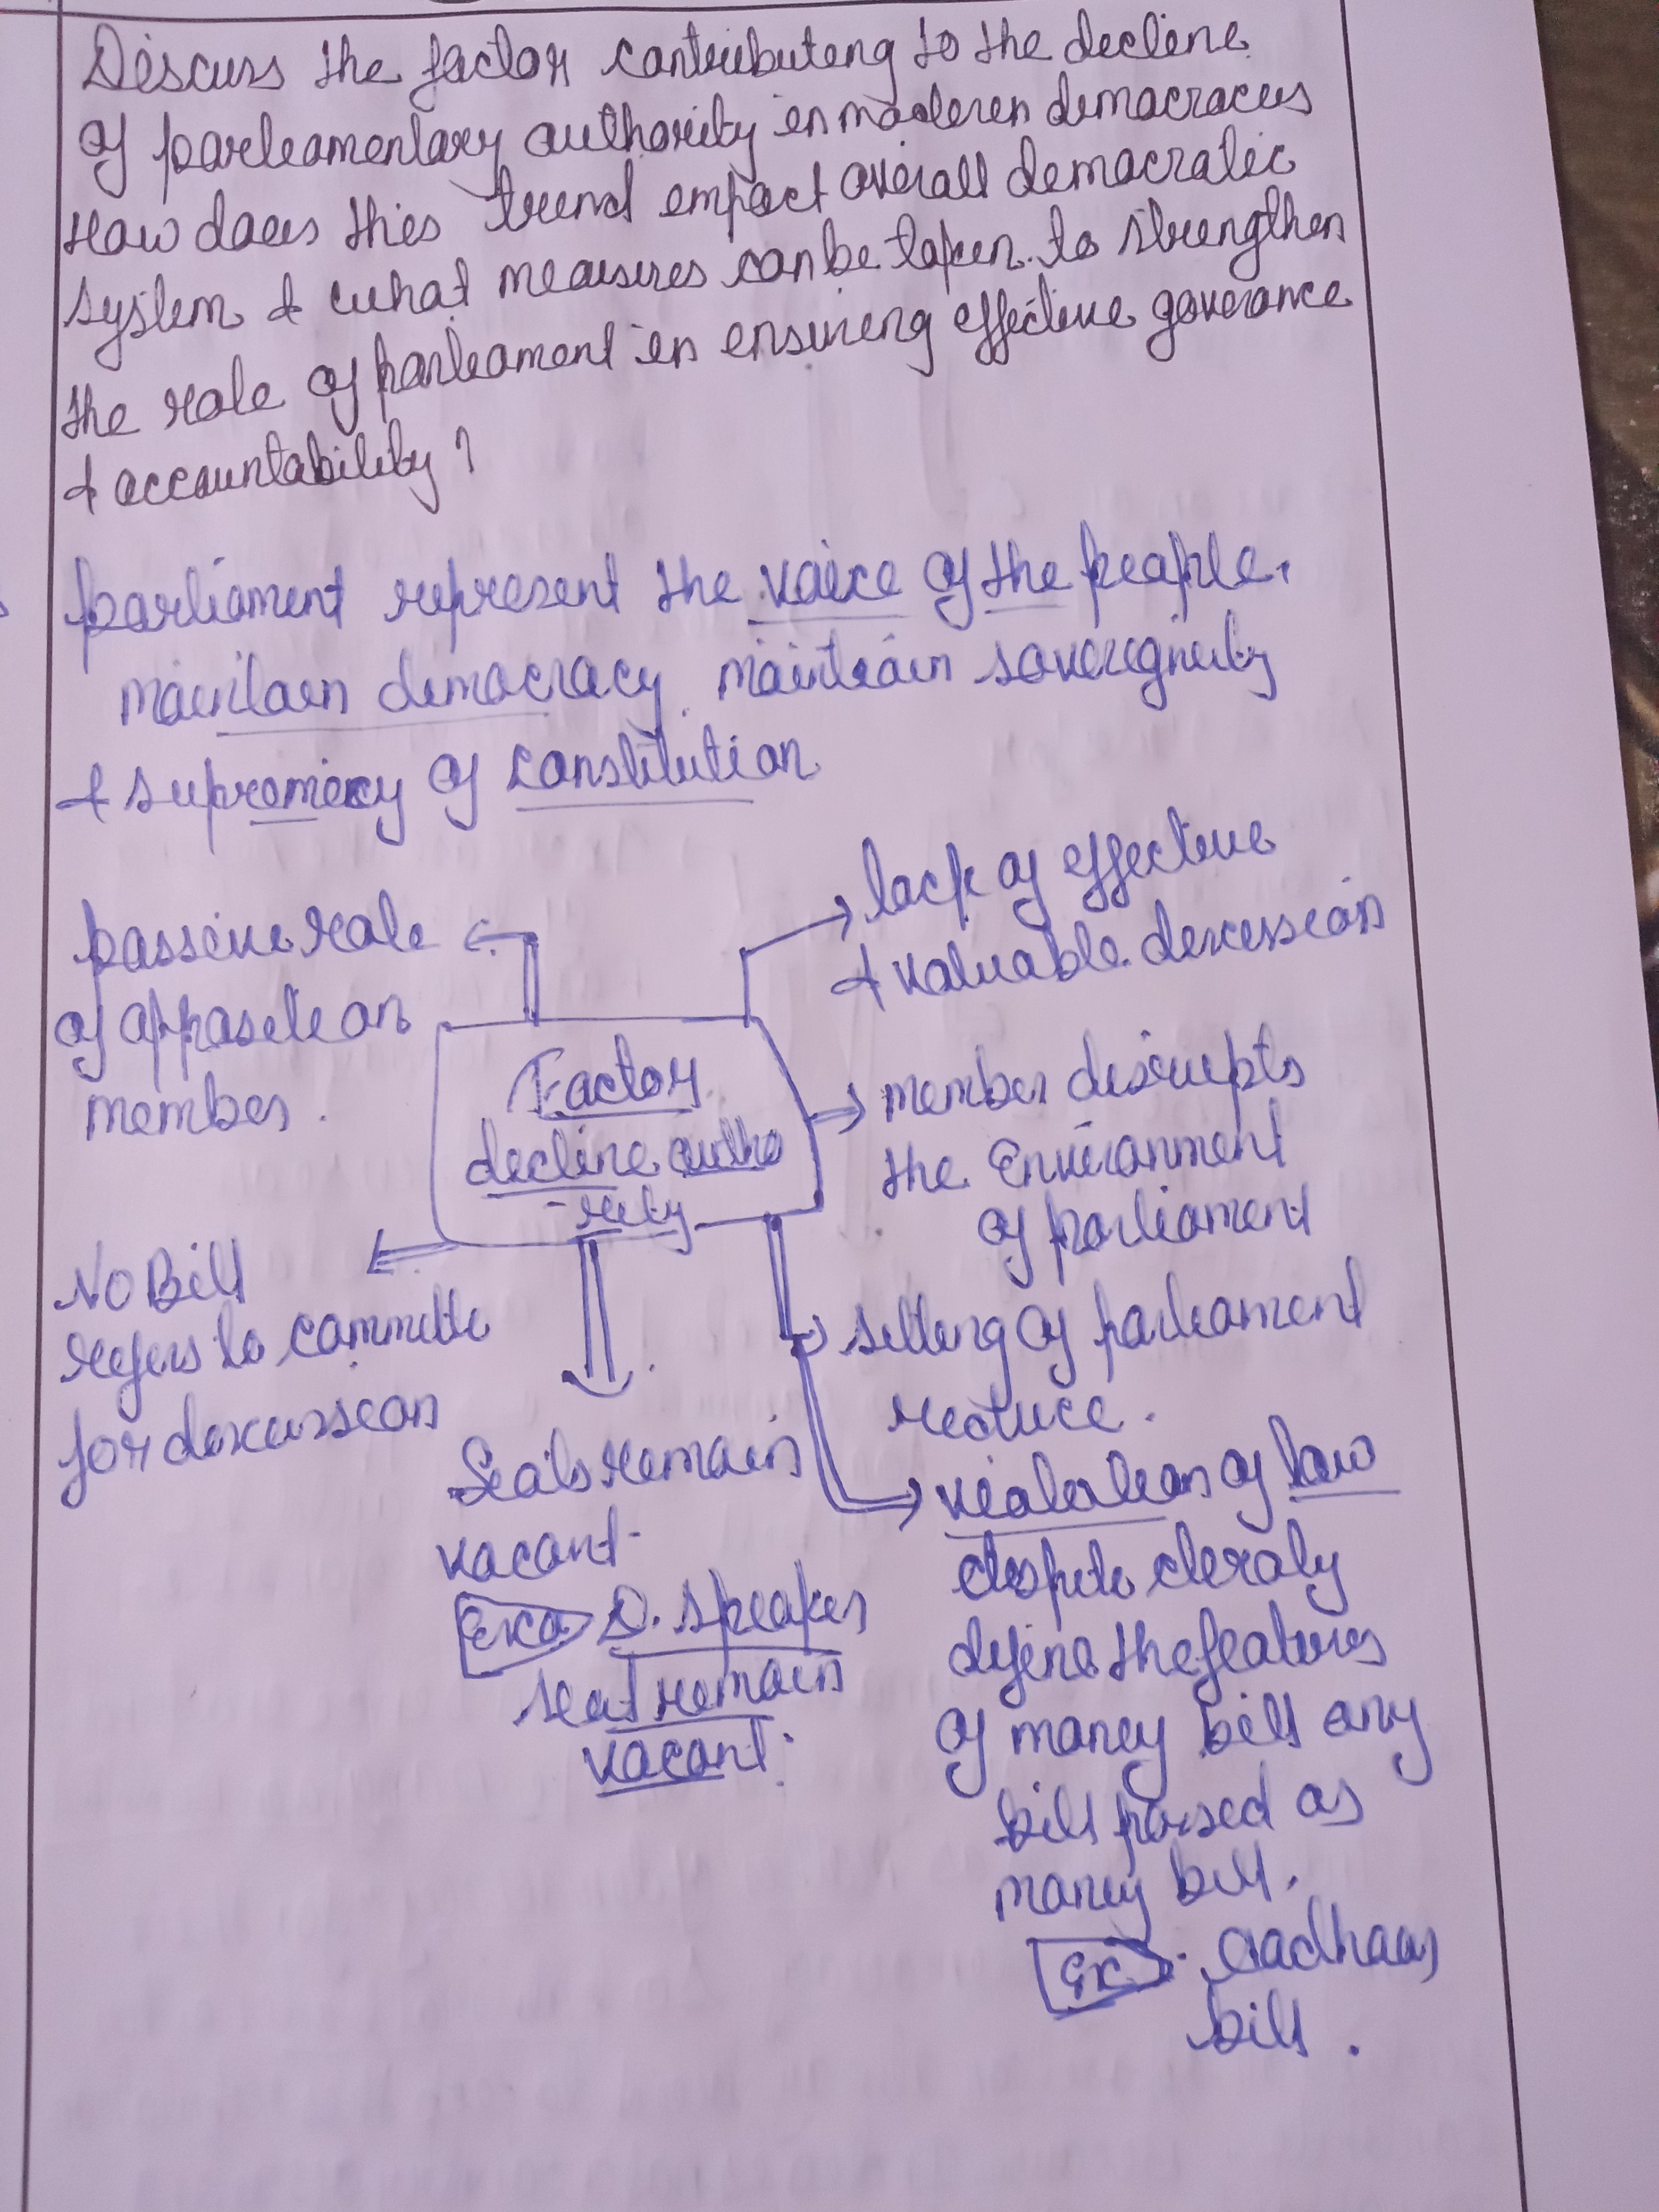 Discuss the factor contributing to the decline
of parliamentary authority in moderen democracies
How does this trend impact overall democratic
system & what measures can be taken to strengthen
the role of parliament in ensuring effective goverance
& accountability ?
parliament represent the voice of the people,
maintain democracy, maintain sovereignity
& supremecy of constitution
lack of effective
& valuable discussion
passive role
of opposition
member.
Factor
decline autho
-rity
member disrupts
the Environment
of parliament
No Bill
refers to committe
for discussion
sitting of parliament
reduce.
Seats remain
vacant.
Exa D. speaker
seat remain
vacant.
violation of law
despite cleraly
define the features
of money bill any
bill passed as
money bill.
Ex. Aadhaar
bill.